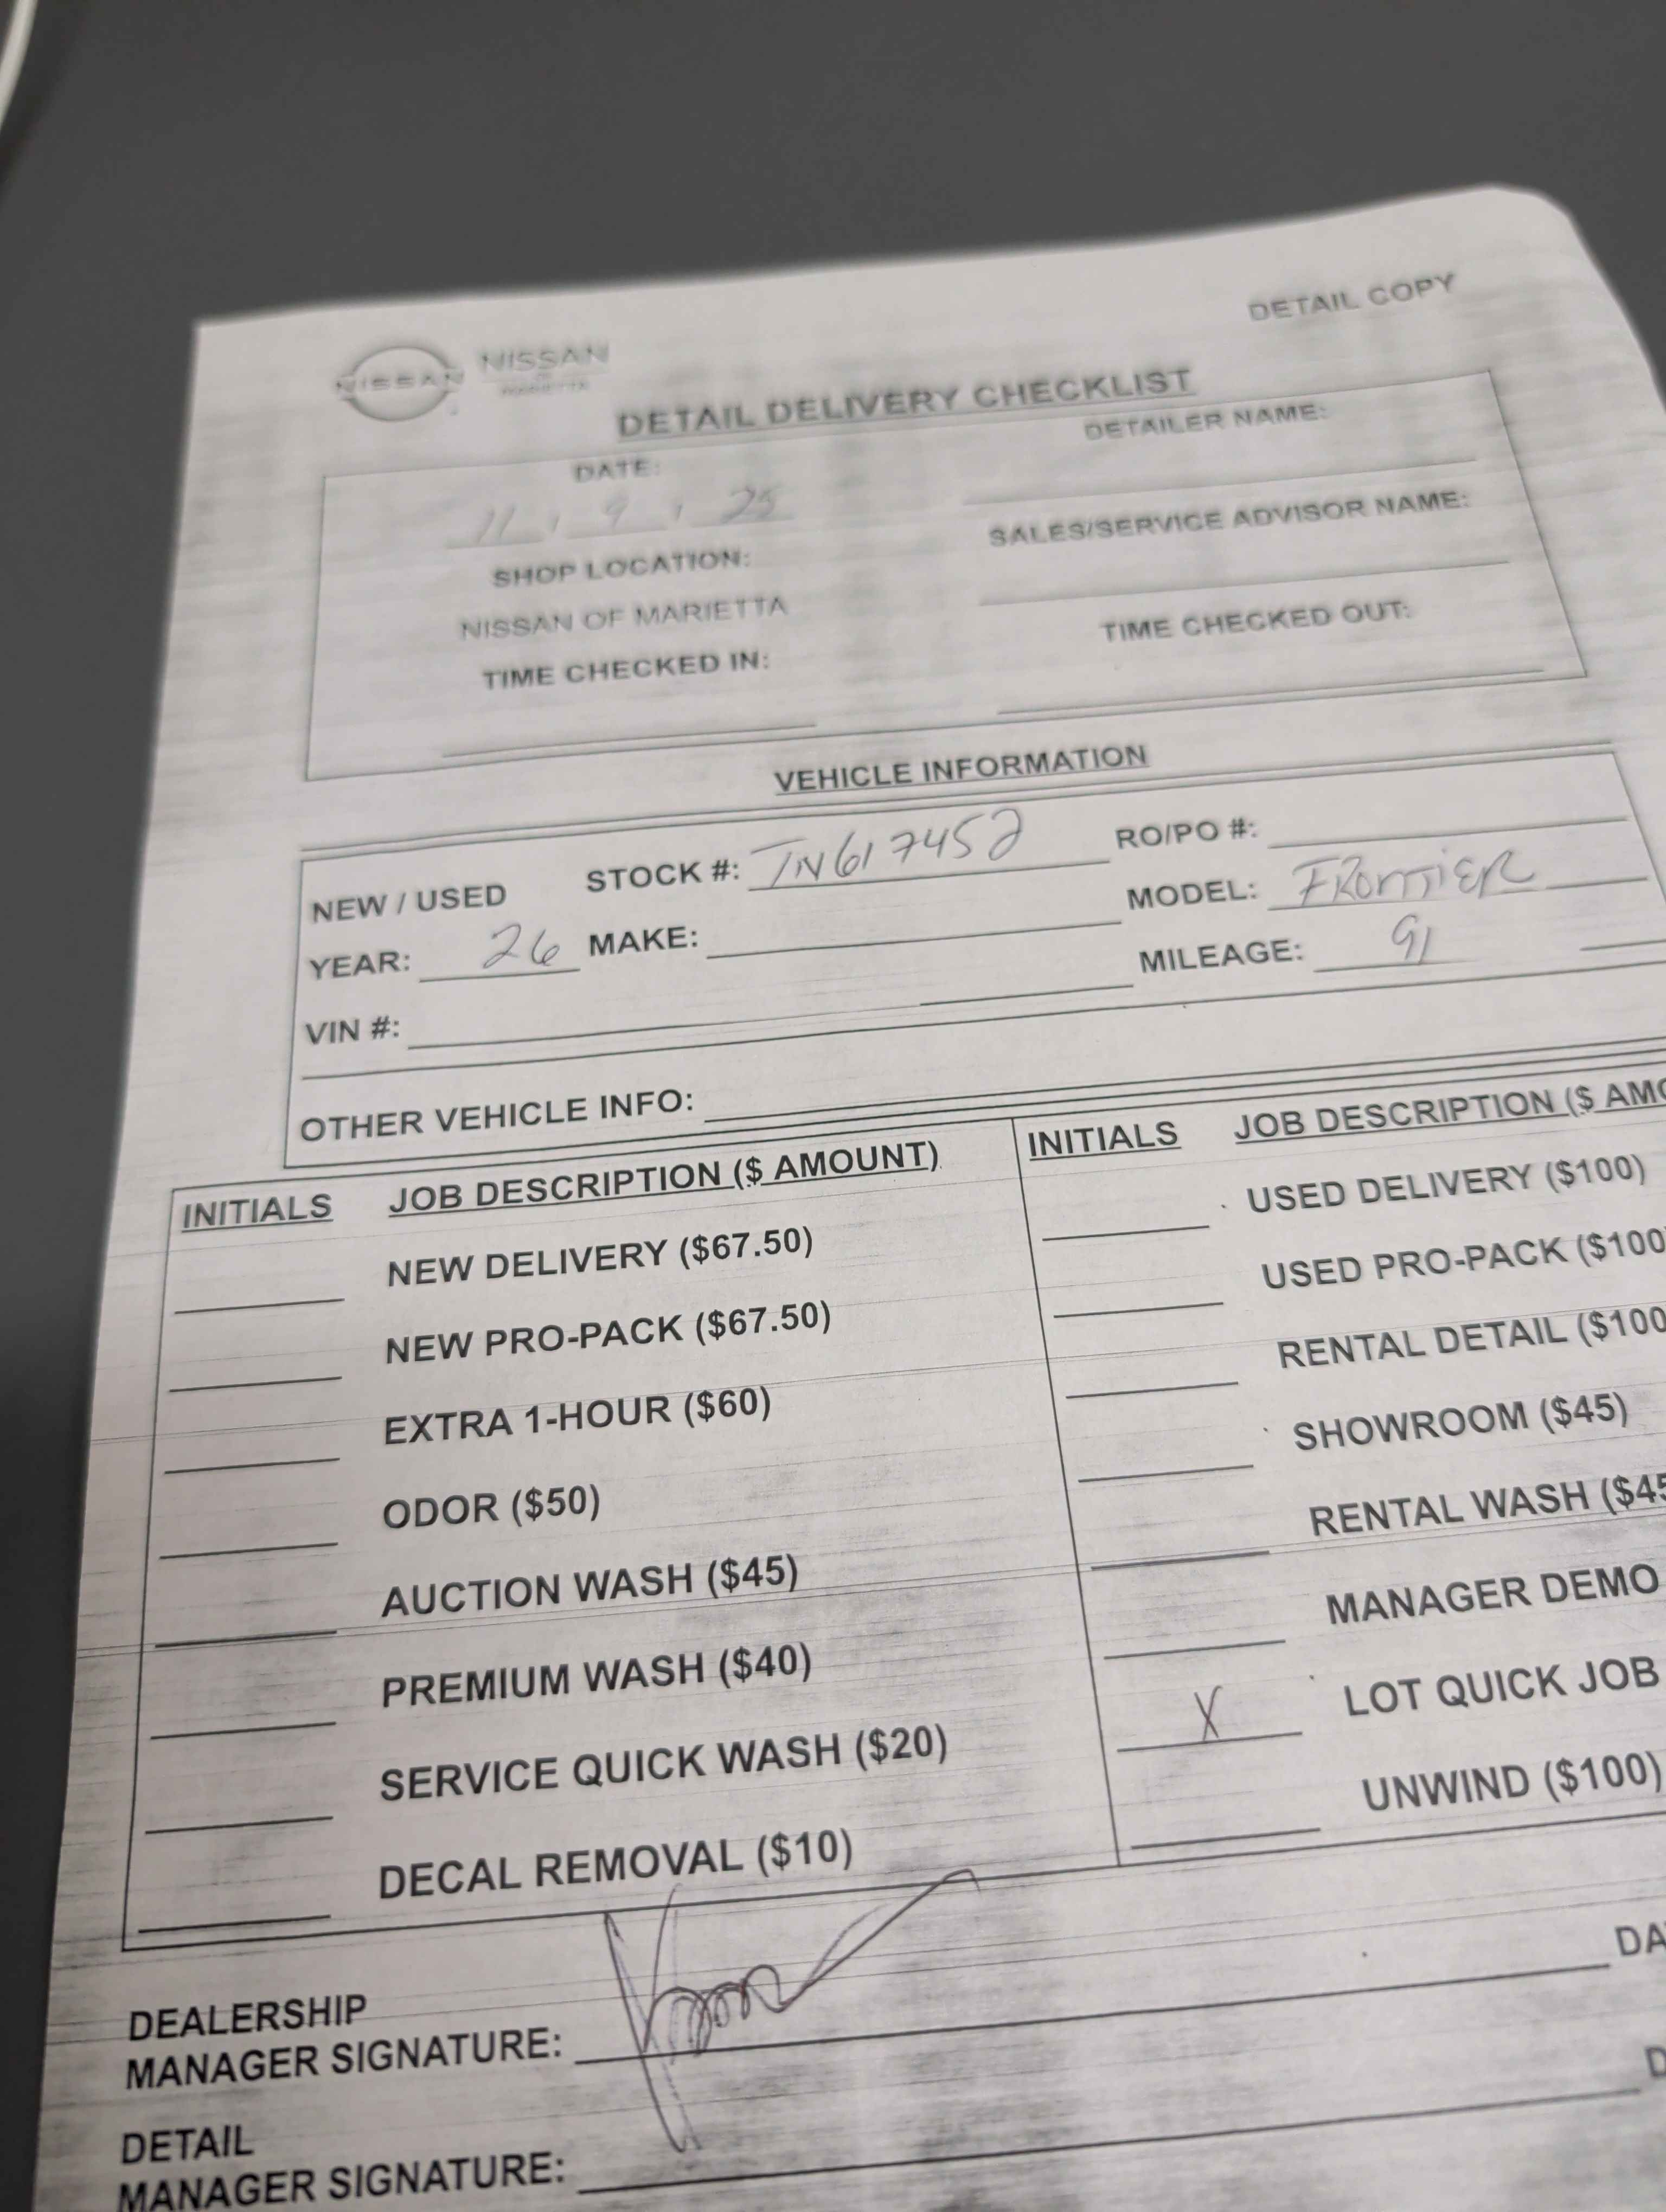 DETAIL COPY
NISSAN NISSAN
OF
MARIETTA
DETAIL DELIVERY CHECKLIST
DATE: DETAILER NAME:
11 / 9 / 25
SHOP LOCATION: SALES/SERVICE ADVISOR NAME:
NISSAN OF MARIETTA
TIME CHECKED IN: TIME CHECKED OUT:
VEHICLE INFORMATION
NEW / USED STOCK #: TN617452 RO/PO #:
YEAR: 26 MAKE: MODEL: FRONTIER
VIN #: MILEAGE: 91
OTHER VEHICLE INFO:
INITIALS JOB DESCRIPTION ($ AMOUNT) INITIALS JOB DESCRIPTION ($ AMO
NEW DELIVERY ($67.50) USED DELIVERY ($100)
NEW PRO-PACK ($67.50) USED PRO-PACK ($100)
EXTRA 1-HOUR ($60) RENTAL DETAIL ($100
ODOR ($50) SHOWROOM ($45)
AUCTION WASH ($45) RENTAL WASH ($45
PREMIUM WASH ($40) MANAGER DEMO
SERVICE QUICK WASH ($20) X LOT QUICK JOB
DECAL REMOVAL ($10) UNWIND ($100)
DEALERSHIP
MANAGER SIGNATURE: DA
DETAIL
MANAGER SIGNATURE: D